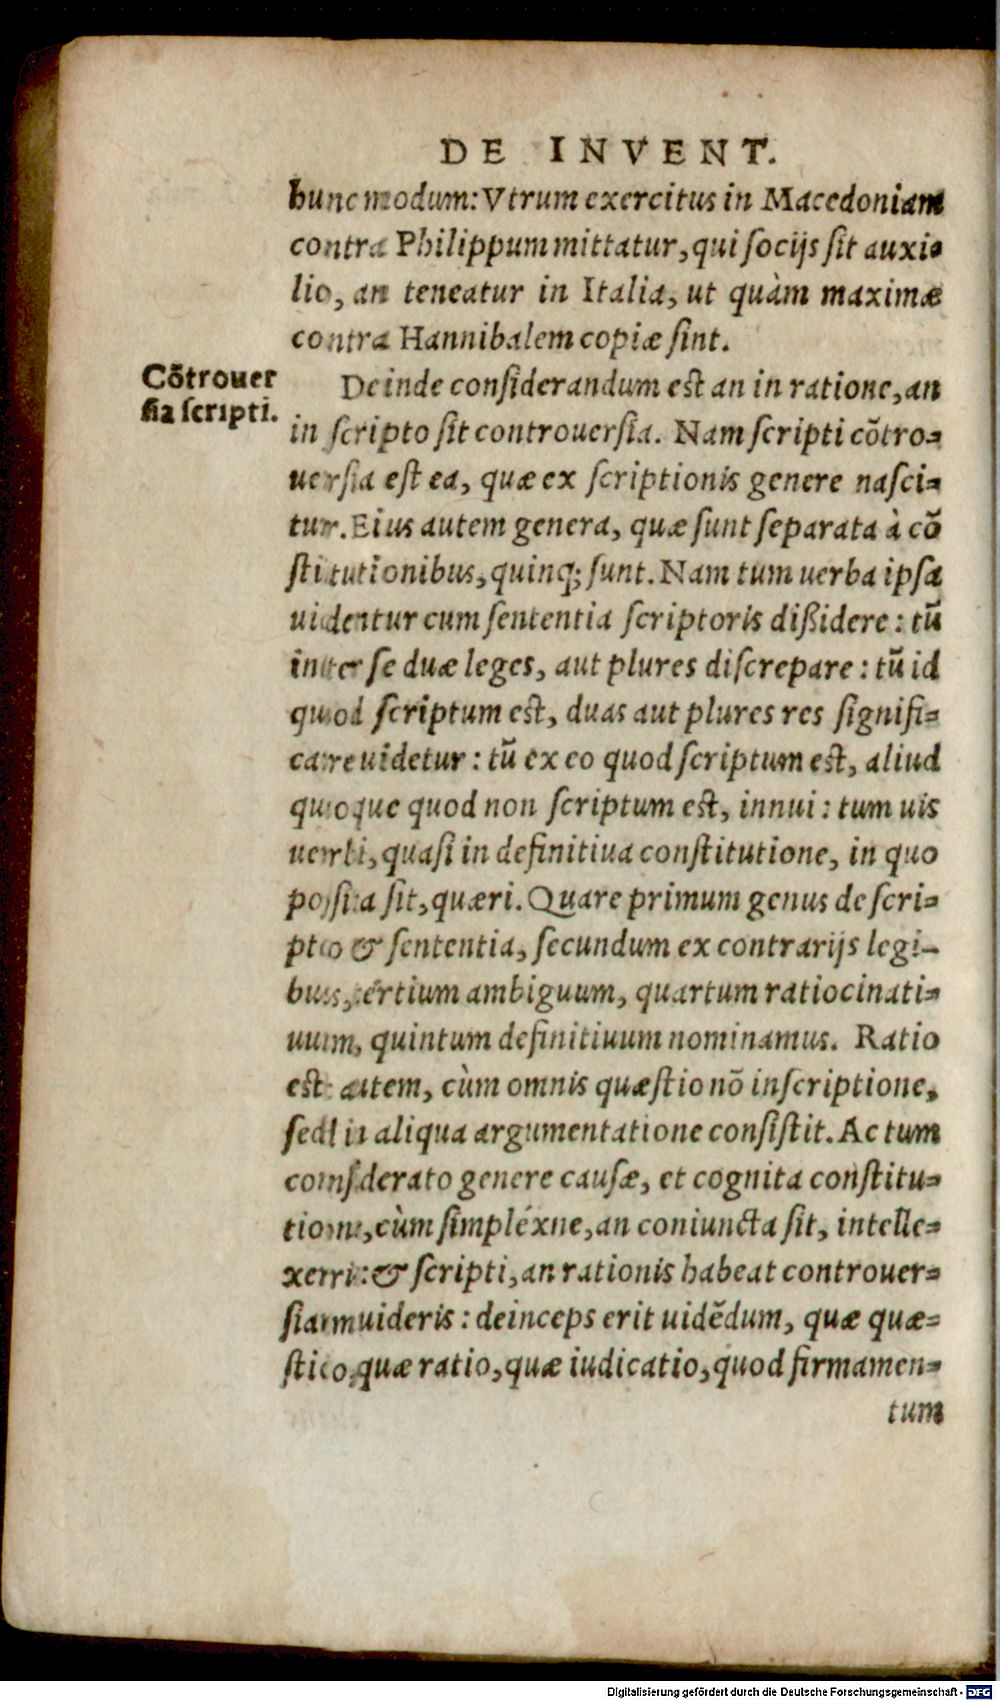 DE INVENT.
hunc modum: Vtrum exercitus in Macedoniam
contra Philippum mittatur, qui socijs sit auxi-
lio, an teneatur in Italia, ut quàm maximæ
contra Hannibalem copiæ sint.
Cõtrouer
sia scripti.
Deinde considerandum est an in ratione, an
in scripto sit controuersia. Nam scripti cõtro-
uersia est ea, quæ ex scriptionis genere nasci-
tur. Eius autem genera, quæ sunt separata à cõ
stitutionibus, quinq; sunt. Nam tum uerba ipsa
uidentur cum sententia scriptoris dißidere: tũ
inter se duæ leges, aut plures discrepare: tũ id
quod scriptum est, duas aut plures res signifi-
care uidetur: tũ ex eo quod scriptum est, aliud
quoque quod non scriptum est, innui: tum uis
uerbi, quasi in definitiua constitutione, in quo
posita sit, quæri. Quare primum genus de scri-
pto & sententia, secundum ex contrarijs legi-
bus, tertium ambiguum, quartum ratiocinati-
uum, quintum definitiuum nominamus. Ratio
est autem, cùm omnis quæstio nõ in scriptione,
sed in aliqua argumentatione consistit. Ac tum
considerato genere causæ, et cognita constitu-
tione, cùm simpléxne, an coniuncta sit, intelle-
xeris: & scripti, an rationis habeat controuer-
siam uideris: deinceps erit uidẽdum, quæ quæ-
stio, quæ ratio, quæ iudicatio, quod firmamen-
tum
Digitalisierung gefördert durch die Deutsche Forschungsgemeinschaft - DFG